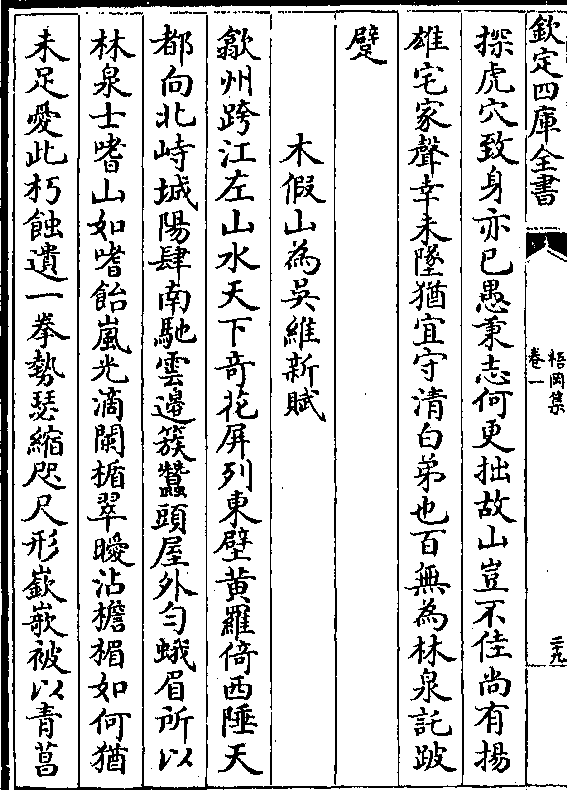 欽定四庫全書
梧岡集
卷一
二十九
探虎穴致身亦已愚秉志何更拙故山豈不佳尚有揚
雄宅家聲幸未墜猶宜守清白弟也百無為林泉託跛
躄
木假山為吳維新賦
歙州跨江左山水天下奇花屏列東壁黃羅倚西陲天
都向北峙城陽肆南馳雲邊簇蠶頭屋外勻蛾眉所以
林泉士嗜山如嗜飴嵐光滴闌楯翠曖沾檐楣如何猶
未足愛此朽蝕遺一拳勢瑟縮咫尺形嶔㟢被以青菖